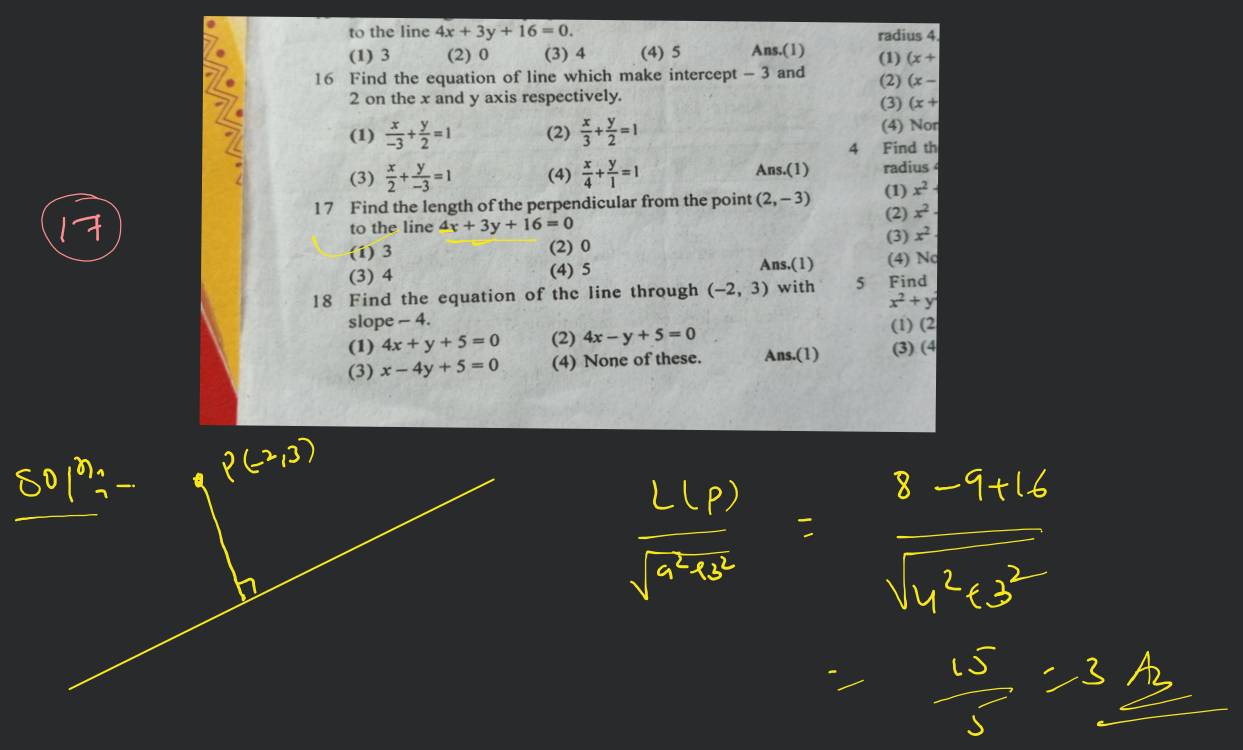 to the line 4x + 3y + 16 = 0.
(1) 3 (2) 0 (3) 4 (4) 5 Ans.(1)
16 Find the equation of line which make intercept – 3 and
2 on the x and y axis respectively.
(1) x/-3 + y/2 = 1 (2) x/3 + y/2 = 1
(3) x/2 + y/-3 = 1 (4) x/4 + y/1 = 1 Ans.(1)
17 Find the length of the perpendicular from the point (2, – 3)
to the line 4x + 3y + 16 = 0
(1) 3 (2) 0
(3) 4 (4) 5 Ans.(1)
18 Find the equation of the line through (–2, 3) with
slope – 4.
(1) 4x + y + 5 = 0 (2) 4x – y + 5 = 0
(3) x – 4y + 5 = 0 (4) None of these. Ans.(1)
radius 4.
(1) (x +
(2) (x –
(3) (x +
(4) Non
4 Find th
radius 4
(1) x²
(2) x²
(3) x²
(4) No
5 Find
x² + y²
(1) (2
(3) (4
17
Soln:-
P(-2,3)
L(P)/√(a²+b²) = (8 -9+16)/√(4²+3²)
= 15/5 = 3 As